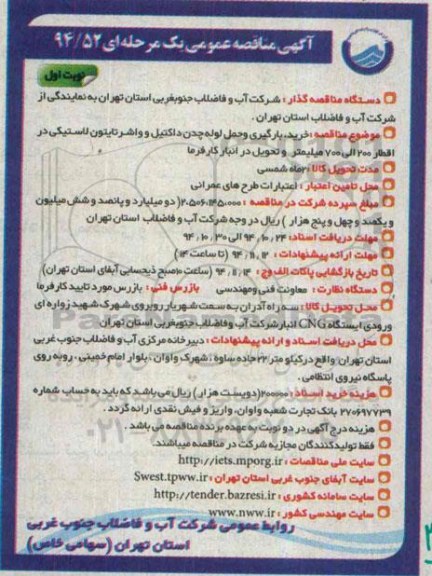 آگهی مناقصه عمومی یک مرحله ای ۹۴/۵۲
نوبت اول
دستگاه مناقصه گذار : شرکت آب و فاضلاب جنوبغربی استان تهران به نمایندگی از
شرکت آب و فاضلاب استان تهران .
موضوع مناقصه : خرید، بارگیری وحمل لوله چدن داکتیل و واشر تایتون لاستیکی در
اقطار ۲۰۰ الی ۷۰۰ میلیمتر و تحویل در انبار کارفرما
مدت تحویل کالا : ماه شمسی
محل تأمین اعتبار : اعتبارات طرح های عمرانی
مبلغ سپرده شرکت در مناقصه : ۲،۵۰۶،۱۴۵،۰۰۰( دو میلیارد و پانصد و شش میلیون
و یکصد و چهل و پنج هزار ) ریال در وجه شرکت آب و فاضلاب استان تهران
مهلت دریافت اسناد : ۲۴ /۱۰ /۹۴ الی ۳۰ /۱۰ /۹۴
مهلت ارائه پیشنهادات : ۱۲ /۱۱ /۹۴ (تا ساعت ۱۴ )
تاریخ بازگشایی پاکات الف و ج : ۱۴ /۱۱ /۹۴ (ساعت ۱۰صبح ذیحسابی آبفای استان تهران)
دستگاه نظارت : معاونت فنی ومهندسی بازرس فنی : بازرس مورد تایید کارفرما
محل تحویل کالا : سه راه آدران به سمت شهریار روبروی شهرک شهید زواره ای
ورودی ایستگاه CNG انبار شرکت آب وفاضلاب جنوبغربی استان تهران
محل دریافت اسناد و ارائه پیشنهادات : دبیرخانه مرکزی آب و فاضلاب جنوب غربی
استان تهران واقع در کیلو متر ۲۲ جاده ساوه ، شهرک واوان ، بلوار امام خمینی ، روبه روی
پاسگاه نیروی انتظامی .
هزینه خرید اسناد : ۲۰۰۰۰۰(دویست هزار ) ریال می باشد که باید به حساب شماره
۲۷۰۶۹۷۷۳۹ بانک تجارت شعبه واوان، واریز و فیش نقدی ارائه گردد .
هزینه درج آگهی در دو نوبت به عهده برنده مناقصه می باشد .
فقط تولیدکنندگان مجاز به شرکت در مناقصه میباشند.
سایت ملی مناقصات : http://iets.mporg.ir
سایت آبفای جنوب غربی استان تهران : Swest.tpww.ir
سایت سامانه کشوری : http://tender.bazresi.ir
سایت مهندسی کشور : www.nww.ir
روابط عمومی شرکت آب و فاضلاب جنوب غربی
استان تهران (سهامی خاص)